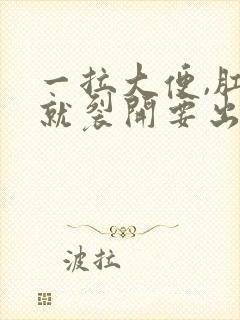 一拉大便,肛
就裂開要出
波拉